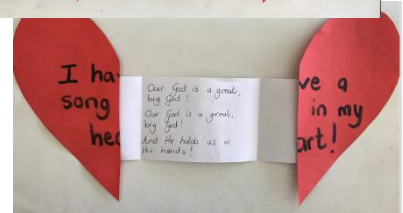 I ha
song
hea
Our God is a great,
big God!
Our God is a great,
big God!
And He holds us in
His hands!
ve a
in my
art!